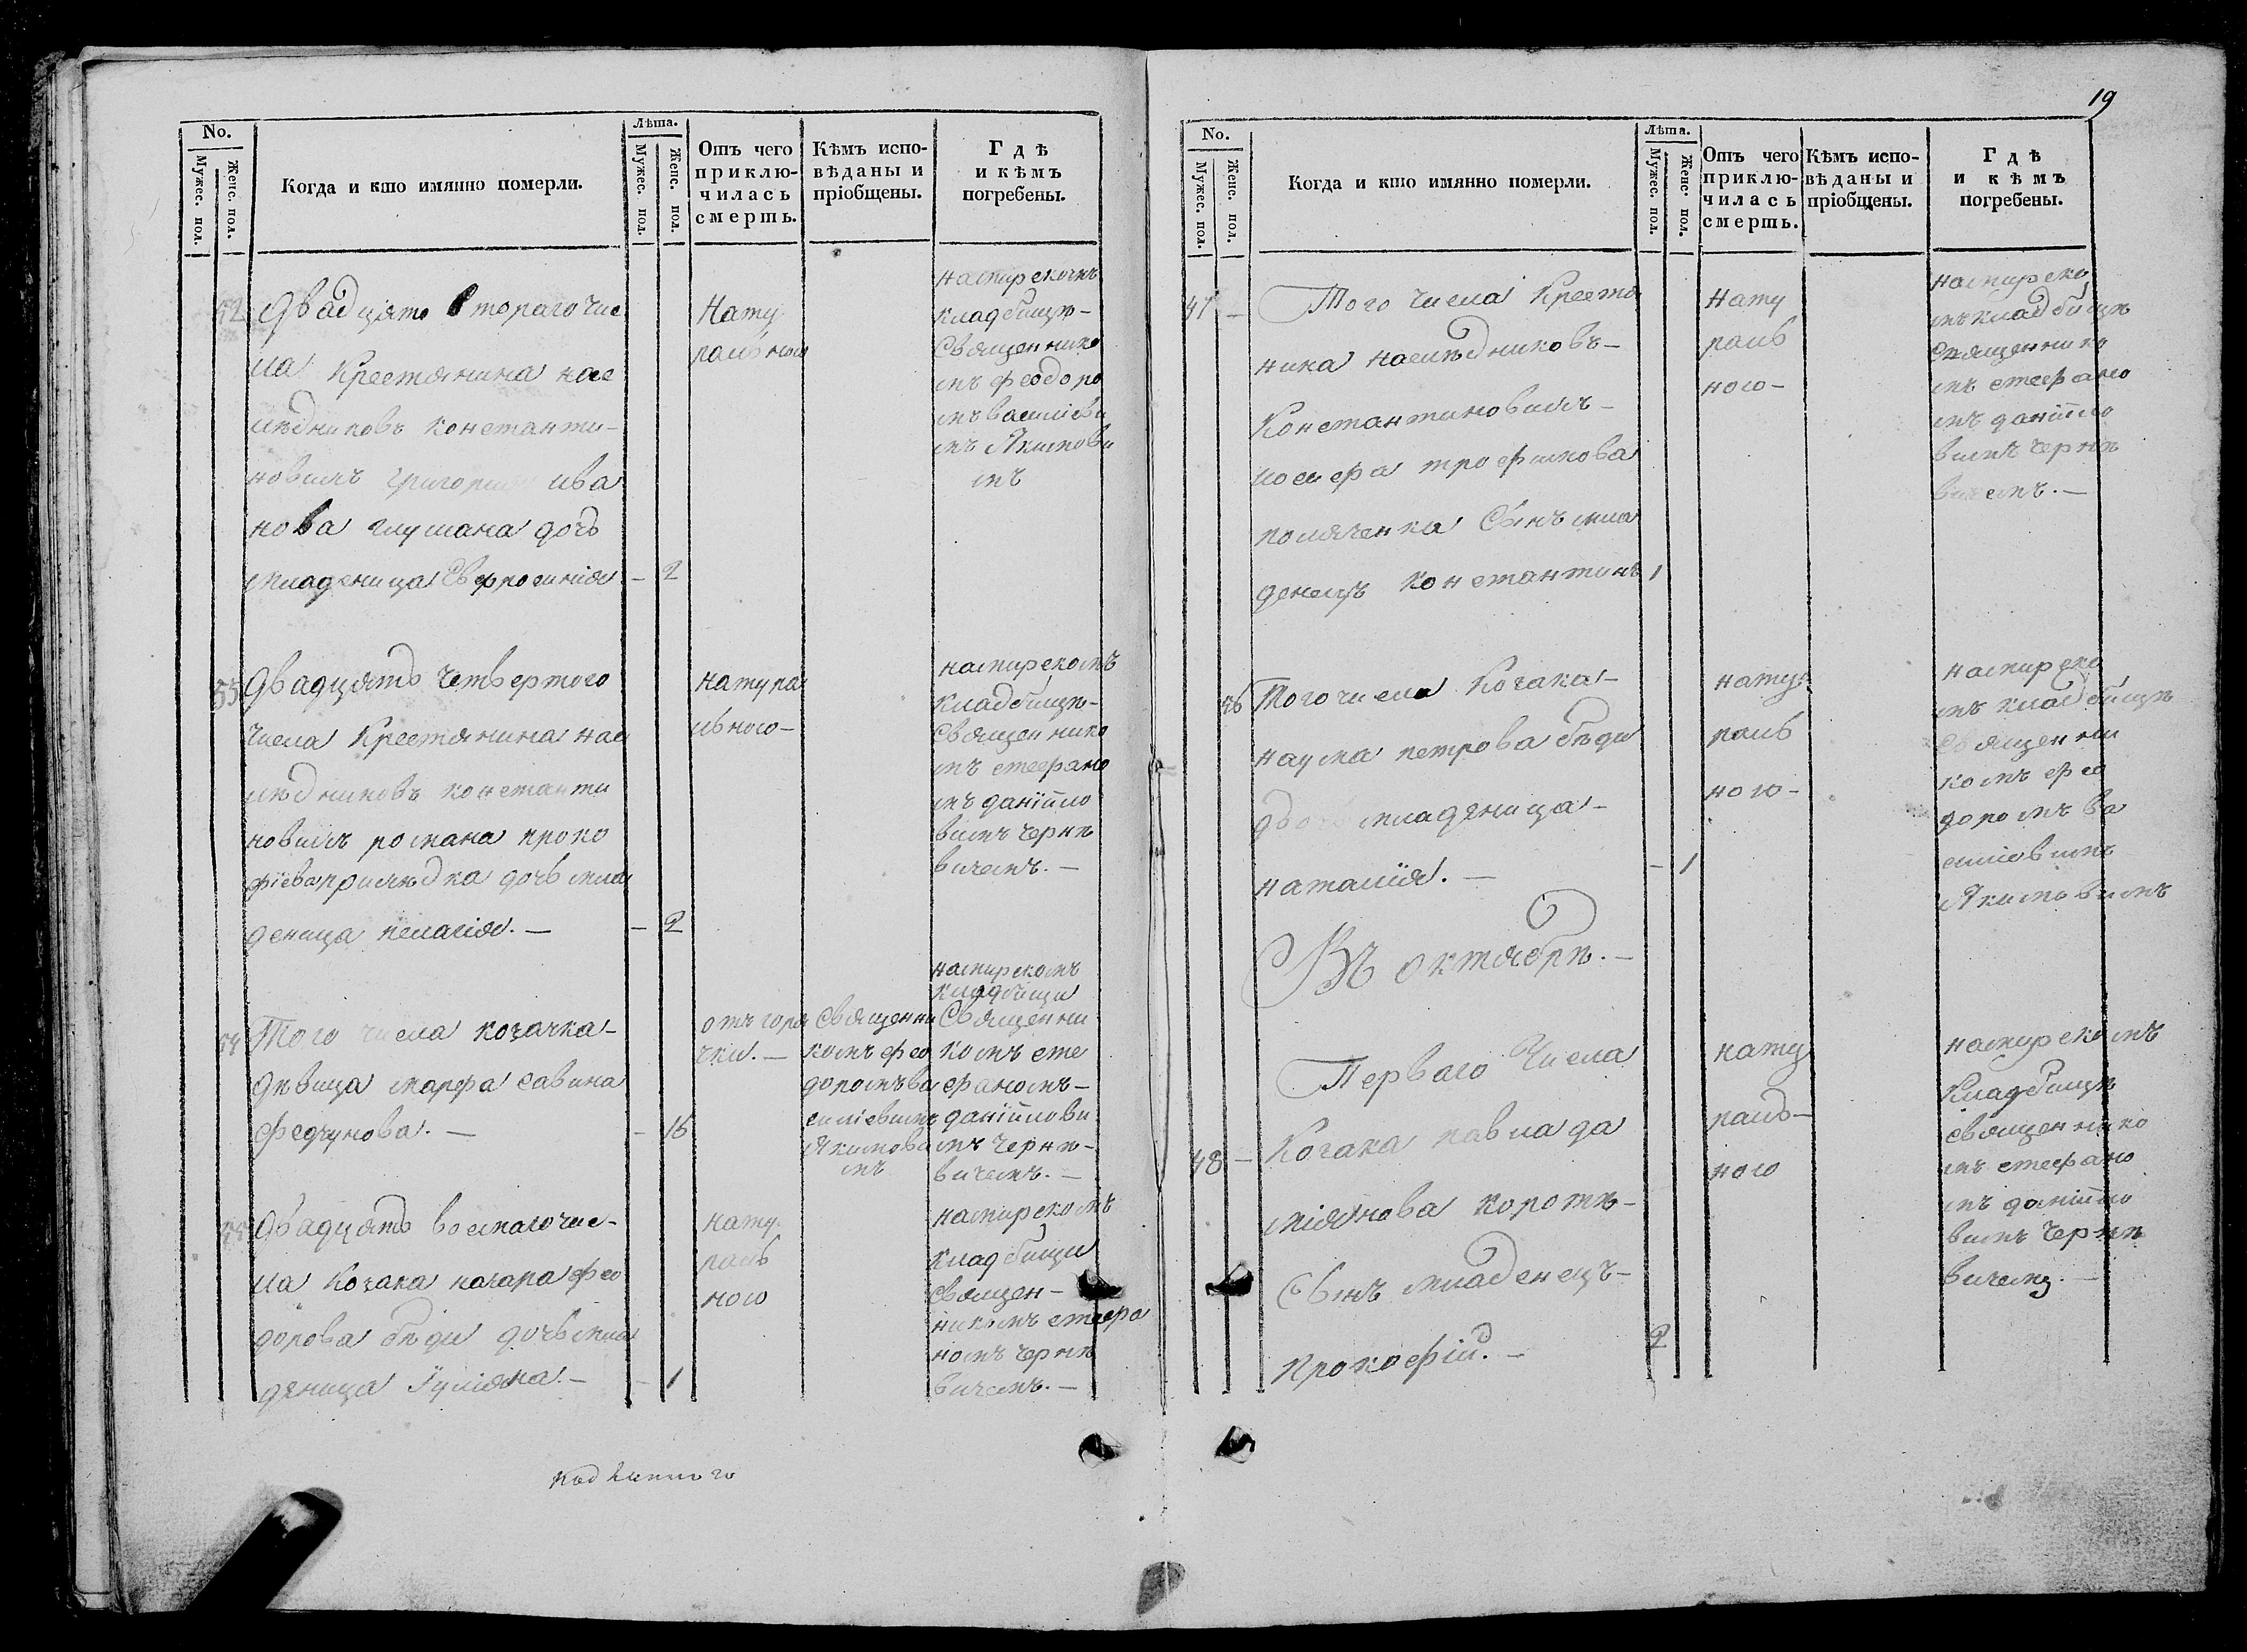 19
No.
Мужес. пол.
Женс. пол.
Когда и кто имянно померли.
Лѣта.
Мужес. пол.
Женс. пол.
Отъ чего
приклю-
чилась
смерть.
Кѣмъ испо-
вѣданы и
пріобщены.
Гдѣ
и кѣмъ
погребены.
52
Двадцять второго чис
ла Крестянина нас
лѣдниковъ константи-
новихъ григория ива
нова глушана дочь
младеница Евфросинія - 2
Нату
ральної
намирскомъ
кладбищѣ-
Священнико
мъ феодоро
мъ василіеви
мъ Якимови
мъ
53
Двадцять четвертого
числа Крестянина нас
лѣдниковъ константи
новихъ романа проко
фіева дочь мла
деница пелагія. - - 2
натура
льного-
намирскомъ
кладбищѣ-
Священнико
мъ стефано
мъ даніило
вимъ черня
вичемъ. -
54
Того числа козачка-
дѣвица марфа савина
федчунова. - - 16
отъ горя
чки. -
Священни
комъ фео
доромъ ва
силіевимъ
Якимови
мъ
намирскомъ
кладбищи
Священни
комъ сте
фаномъ-
даніилови
мъ черня-
вичемъ. -
Двадцять восмаго чис-
ла Козака назара фео
дорова бѣди дочь мла
деница Іуліяна. - - 1
нату
раль
ного
намирскомъ
кладбищи
Священ-
никомъ стефа
номъ черня
вичемъ. -
No.
Мужес. пол.
Женс. пол.
Когда и кто имянно померли.
Лѣта.
Мужес. пол.
Женс. пол.
Отъ чего
приклю-
чилась
смерть.
Кѣмъ испо-
вѣданы и
пріобщены.
Гдѣ
и кѣмъ
погребены.
47 -
Того числа Крестя
ника наслѣдниковъ-
Константиновихъ-
иосифа трофимова
поляченка Сынъ мла
денецъ Константинъ 1
Нату
раль
ного-
намирско
мъ кладбищѣ
Священнико
мъ стефано
мъ даніило
вимъ черня
вичемъ. -
56
Того числа Козака-
наума петрова бѣди
дочь младеница-
наталія. - - 1
нату
раль
ного-
намирско
мъ кладбищѣ
Священни
комъ фео
доромъ ва
силіовимъ
Якимовимъ
Въ октябрѣ. -
48 -
Перваго Числа
Козака павла да
міянова коротя-
Сынъ младенецъ-
Прокофій. - 2
нату
раль-
ного
намирскомъ
Кладбищѣ
священнико
мъ стефано
мъ даніило
вимъ черня
вичемъ. -